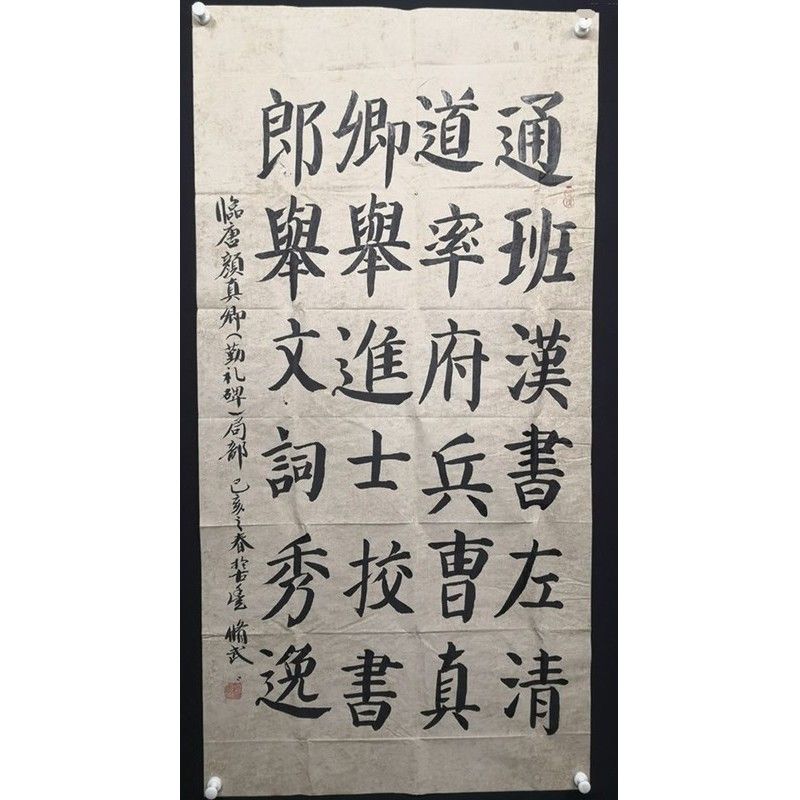 通班漢書左清
道率府兵曹真
卿舉進士挍書
郎舉文詞秀逸
臨唐顏真卿(勤礼碑)局部 己亥之春於 脩武